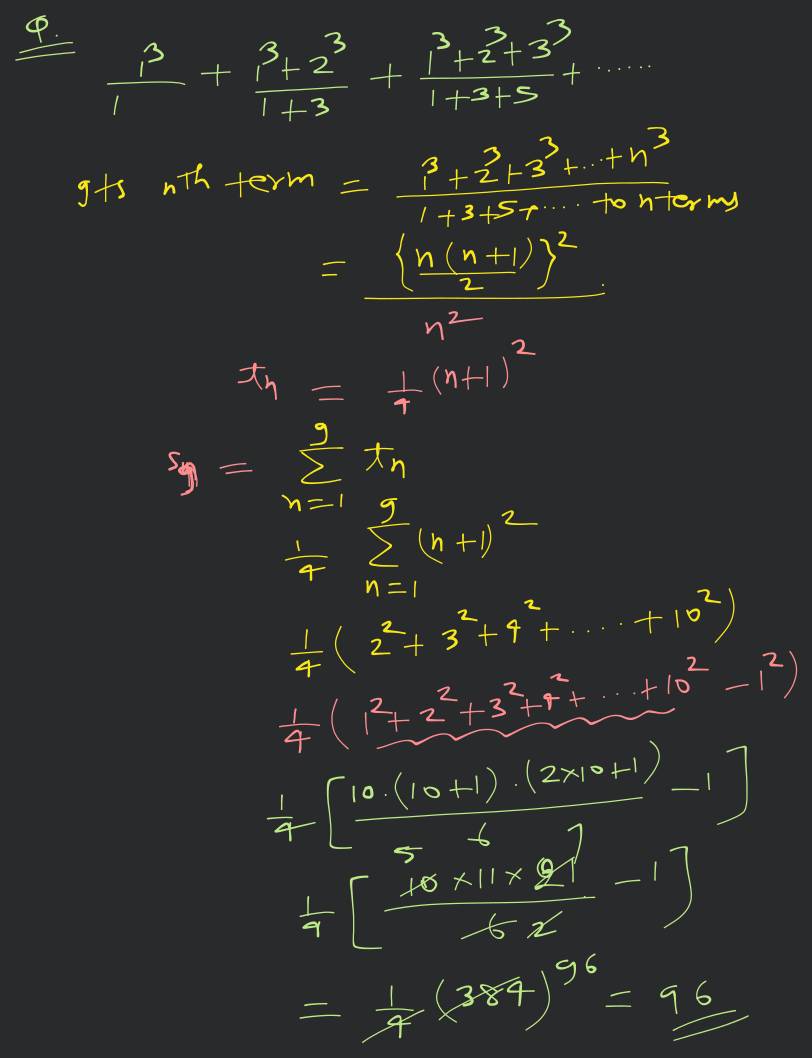 Q.
1³/1 + (1³+2³)/(1+3) + (1³+2³+3³)/(1+3+5) + ......
gts nth term = (1³+2³+3³+...+n³)/(1+3+5+.... to n terms)
= {n(n+1)/2}²/n²
tₙ = 1/4 (n+1)²
S₉ = Σ_{n=1}^{9} tₙ
1/4 Σ_{n=1}^{9} (n+1)²
1/4 (2²+3²+4²+.....+10²)
1/4 (1²+2²+3²+4²+...+10² -1²)
1/4 [10.(10+1).(2×10+1)/6 -1]
1/4 [10×11×21/6 -1] 5 7 2
= 1/4 (384) 96 = 96